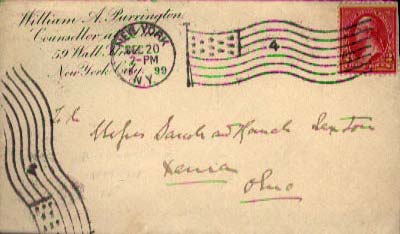 William A. Purrington,
Counsellor a
59 Wall
New York City.
NEW YORK
DEC 20
2-PM
99
N.Y.
4
To the
Misses Sarah and Hannah
Xenia
Ohio